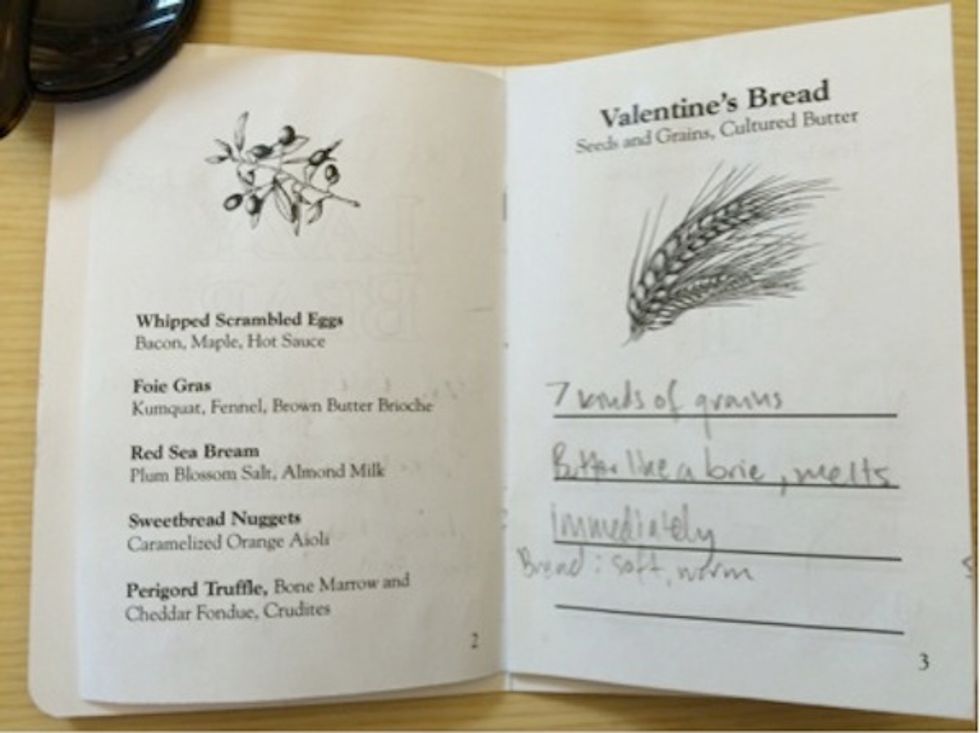 Whipped Scrambled Eggs
Bacon, Maple, Hot Sauce
Foie Gras
Kumquat, Fennel, Brown Butter Brioche
Red Sea Bream
Plum Blossom Salt, Almond Milk
Sweetbread Nuggets
Caramelized Orange Aioli
Perigord Truffle, Bone Marrow and
Cheddar Fondue, Crudites
2
Valentine's Bread
Seeds and Grains, Cultured Butter
7 kinds of grains
Butter like a brie, melts
immediately
Bread: soft, warm
3